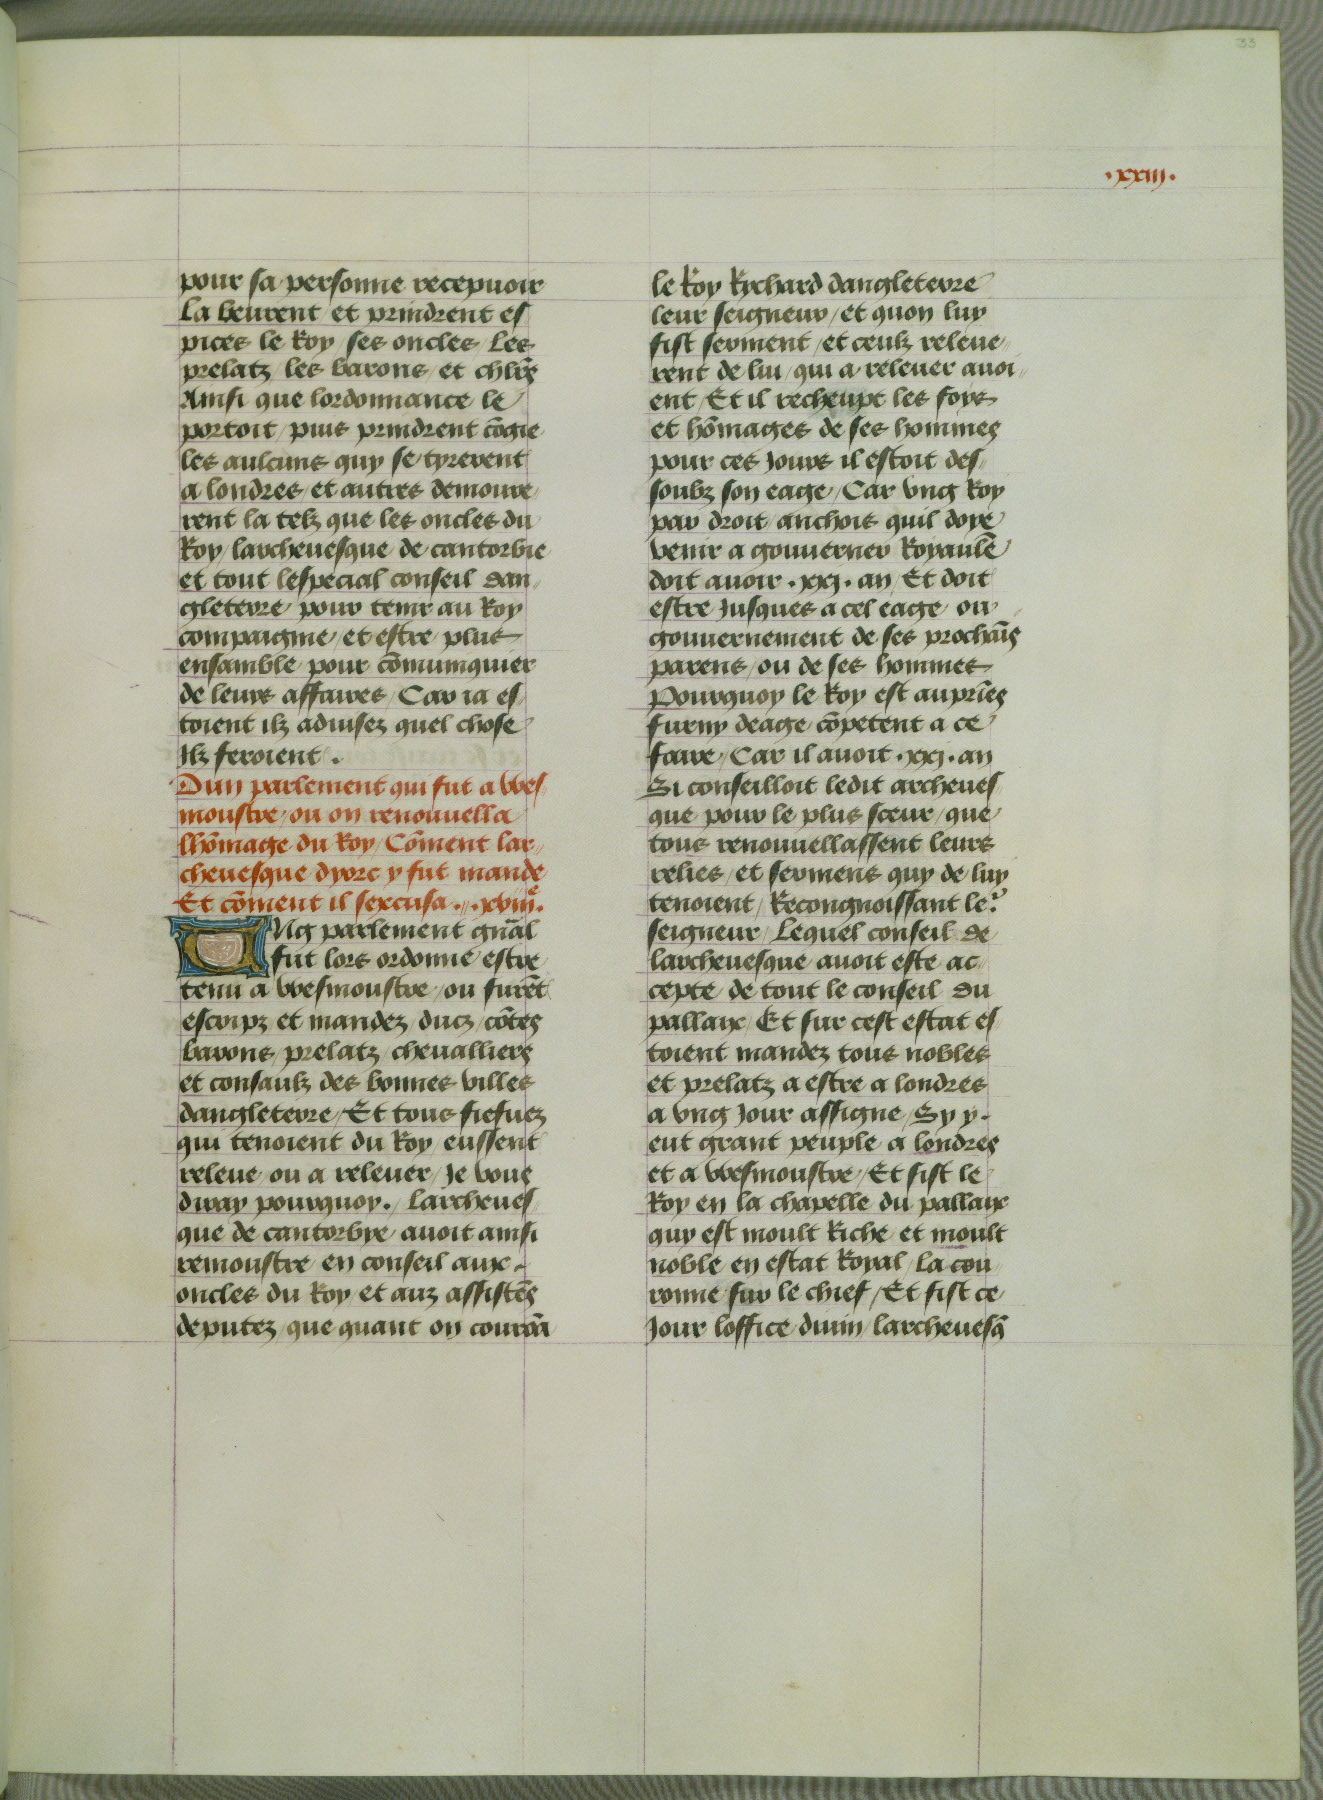 33
·xxiij·
pour sa personne recepuoir
La beurent et prindrent es
pices le Roy / ses oncles Les
prelatz / les barons / et chlr̄s
Ainsi que lordonnance le
portoit / puis prindrent cōgie
les aulcuns quy se tyrerent
a londres / et autres demoure
rent la telz que les oncles du
Roy / larcheuesque de cantorbie
et tout lespecial conseil dan
gleterre / pour tenir au Roy
compaignie / et estre plus
ensamble / pour cōmunquier
de leurs affaires / Car ia es
toient ilz aduisez quel chose
Ilz feroient .
Dun parlement qui fut a Wes
moustre / ou on renouuella
lhōmage du Roy / Cōment lar
cheuesque dyorc y fut mande
Et cōment il sexcusa . . xviijᵉ.
Vng parlement gn̄al
fut lors ordonne estre
tenu a Wesmoustre / ou furēt
escripz et mandez / ducz / cōtes
barons / prelatz / cheualliers
et consaulz des bonnes villes
dangleterre / Et tous fiefuez
qui tenoient du Roy / eussent
releue / ou a releuer / Je vous
diray pourquoy . / Larcheues
que de cantorbye / auoit ainsi
remoustre en conseil aux
oncles du Roy / et auz assistēs
deputez / que quant on courōa
le Roy Rychard dangleterre
leur seigneur / et quon luy
fist serment / et ceulz releue
rent de lui / qui a releuer auoi
ent / Et il recheupt les foys
et hōmages de ses hommes
pour ces Jours il estoit des
soubz son eage / Car vng Roy
par droit / anchois quil doye
venir a gouuerner Royaulē
doit auoir · xxj · an / Et doit
estre Jusques a cel eage ou
gouuernement de ses prochāis
parens / ou de ses hommes
Pourquoy le Roy est auprīes
furny deage cōpetent a ce
faire / Car il auoit · xxj · an
Si conseilloit ledit archeues
que pour le plus sceur / que
tous renouuellassent leurs
relies / et sermens quy de luy
tenoient / Recongnoissant leʳ
seigneur / Lequel conseil de
larcheuesque auoit este ac
cepte de tout le conseil du
pallaix / Et sur cest estat es
toient mandez tous nobles
et prelatz a estre a londres
a vng Jour assigne / Sy y
eut grant peuple a londres
et a Wesmoustre / Et fist le
Roy en la chapelle du pallaix
quy est moult Riche et moult
noble en estat Royal / la cou
ronne sur le chief / Et fist ce
Jour loffice diuin / larcheuesq̄